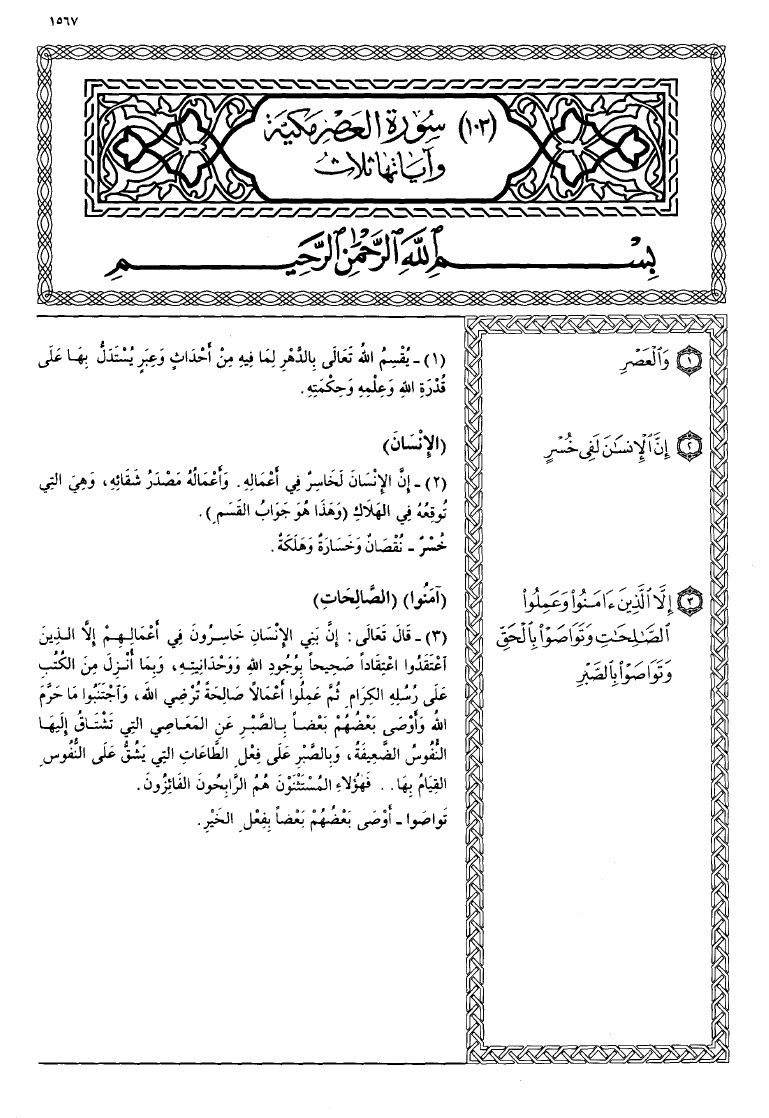 ١٥٦٧
(١٠٣) سُورَة العَصْرِ مَكيَّة
وآيَاتها ثلاث
بِسْمِ ٱللَّهِ ٱلرَّحْمَٰنِ ٱلرَّحِيمِ
١ وَٱلْعَصْرِ
٢ إِنَّ ٱلْإِنسَٰنَ لَفِى خُسْرٍ
٣ إِلَّا ٱلَّذِينَ ءَامَنُوا۟ وَعَمِلُوا۟
ٱلصَّٰلِحَٰتِ وَتَوَاصَوْا۟ بِٱلْحَقِّ
وَتَوَاصَوْا۟ بِٱلصَّبْرِ
(١) - يُقْسِمُ اللهُ تَعَالَى بِالدَّهْرِ لِمَا فِيهِ مِنْ أَحْدَاثٍ وَعِبَرٍ يُسْتَدَلُّ بِهَا عَلَى
قُدْرَةِ اللهِ وَعِلْمِهِ وَحِكْمَتِهِ.
(الإِنْسَانَ)
(٢) - إِنَّ الإِنْسَانَ لَخَاسِرٌ فِي أَعْمَالِهِ. وَأَعْمَالُهُ مَصْدَرُ شَقَائِهِ، وَهِيَ التِي
تُوقِعُهُ فِي الهَلَاكِ (وَهَذَا هُوَ جَوَابُ القَسَمِ).
خُسْرٌ - نُقْصَانٌ وَخَسَارَةٌ وَهَلَكَةٌ.
(آمَنُوا) (الصَّالِحَاتِ)
(٣) - قَالَ تَعَالَى: إِنَّ بَنِي الإِنْسَانِ خَاسِرُونَ فِي أَعْمَالِهِمْ إِلَّا الذِينَ
اعْتَقَدُوا اعْتِقَاداً صَحِيحاً بِوُجُودِ اللهِ وَوَحْدَانِيَتِهِ، وَبِمَا أُنْزِلَ مِنَ الكُتُبِ
عَلَى رُسُلِهِ الكِرَامِ ثُمَّ عَمِلُوا أَعْمَالاً صَالِحَةً تُرْضِي اللهَ، وَاجْتَنَبُوا مَا حَرَّمَ
اللهُ وَأَوْصَى بَعْضُهُمْ بَعْضاً بِالصَّبْرِ عَنِ المَعَاصِي التِي تَشْتَاقُ إِلَيهَا
النُّفُوسُ الضَّعِيفَةُ، وَبِالصَّبْرِ عَلَى فِعْلِ الطَّاعَاتِ التِي يَشُقُّ عَلَى النُّفُوسِ
القِيَامُ بِهَا.. فَهَؤُلَاءِ المُسْتَثْنَوْنَ هُمُ الرَّابِحُونَ الفَائِزُونَ.
تَوَاصَوا - أَوْصَى بَعْضُهُمْ بَعْضاً بِفِعْلِ الخَيْرِ.